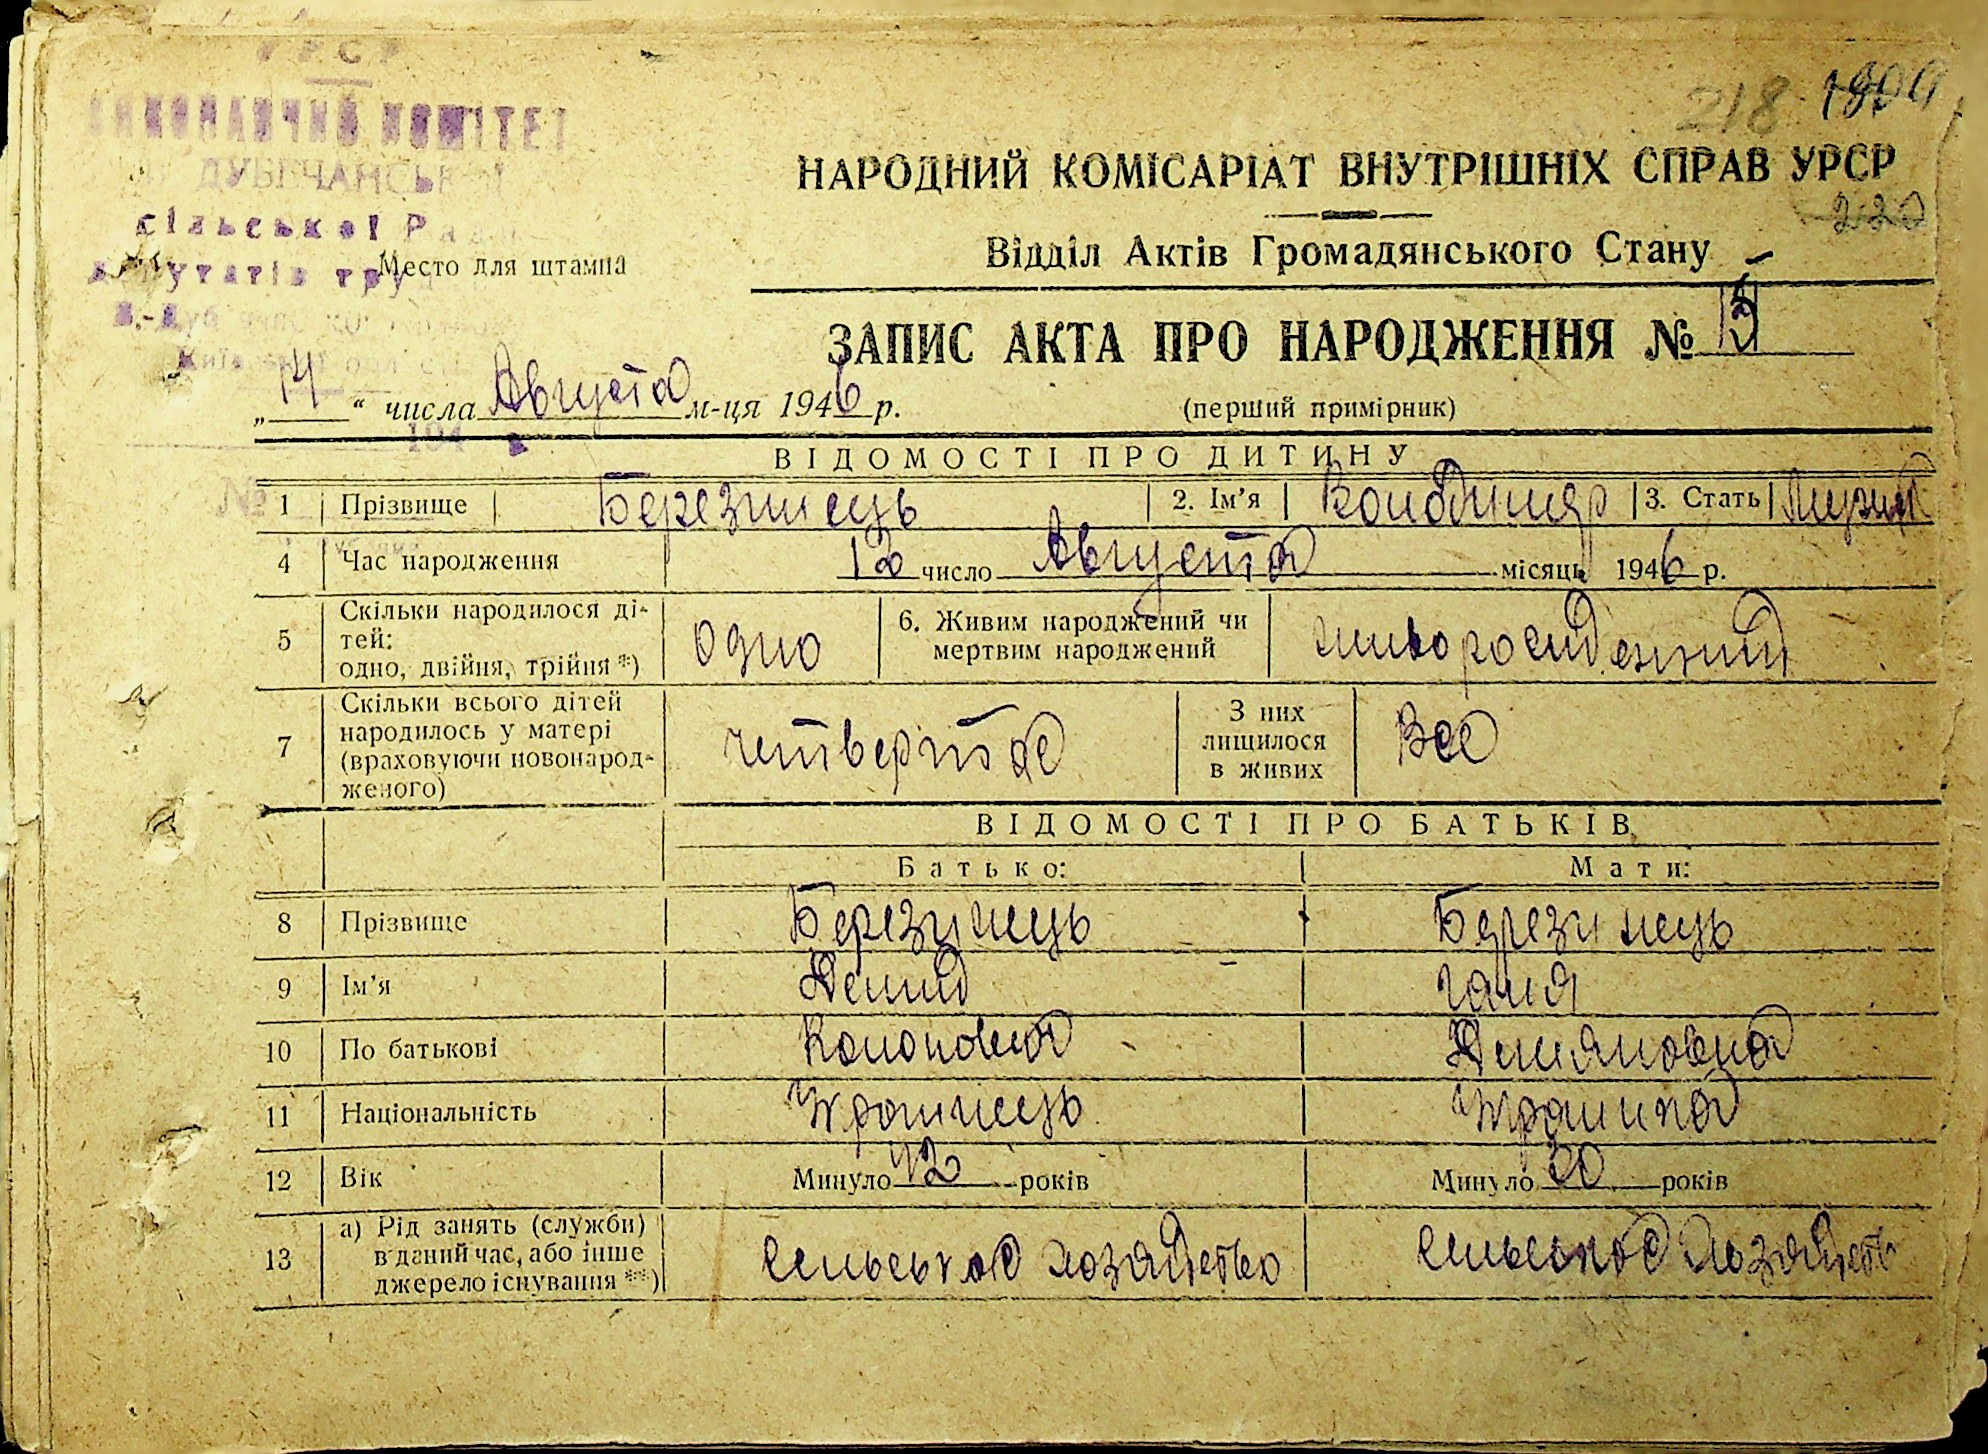 УРСР
ВИКОНАВЧИЙ КОМІТЕТ
ДУБЕЧАНСЬКОЇ
сільської Ради
депутатів тру
Место для штампа
218
НАРОДНИЙ КОМІСАРІАТ ВНУТРІШНІХ СПРАВ УРСР
220
Відділ Актів Громадянського Стану
ЗАПИС АКТА ПРО НАРОДЖЕННЯ № 15
„14“ числа Августа м-ця 1946 р.
(перший примірник)
194
ВІДОМОСТІ ПРО ДИТИНУ
1 Прізвище Березинець 2. Ім'я Володимир 3. Стать
4 Час народження 12 число Августа місяць 1946 р.
5 Скільки народилося ді-
тей:
одно, двійня, трійня *) одно 6. Живим народжений чи
мертвим народжений живорожденный
7 Скільки всього дітей
народилось у матері
(враховуючи новонарод-
женого) четверта З них
лищилося
в живих Все
ВІДОМОСТІ ПРО БАТЬКІВ
Батько: Мати:
8 Прізвище Березинець Березинець
9 Ім'я Демид Галя
10 По батькові Кононович Демяновна
11 Національність Украинець Украинка
12 Вік Минуло 42 років Минуло 30 років
13 а) Рід занять (служби)
в даний час, або інше
джерело існування **) Сельськое хозяйство Сельськое хозяйств